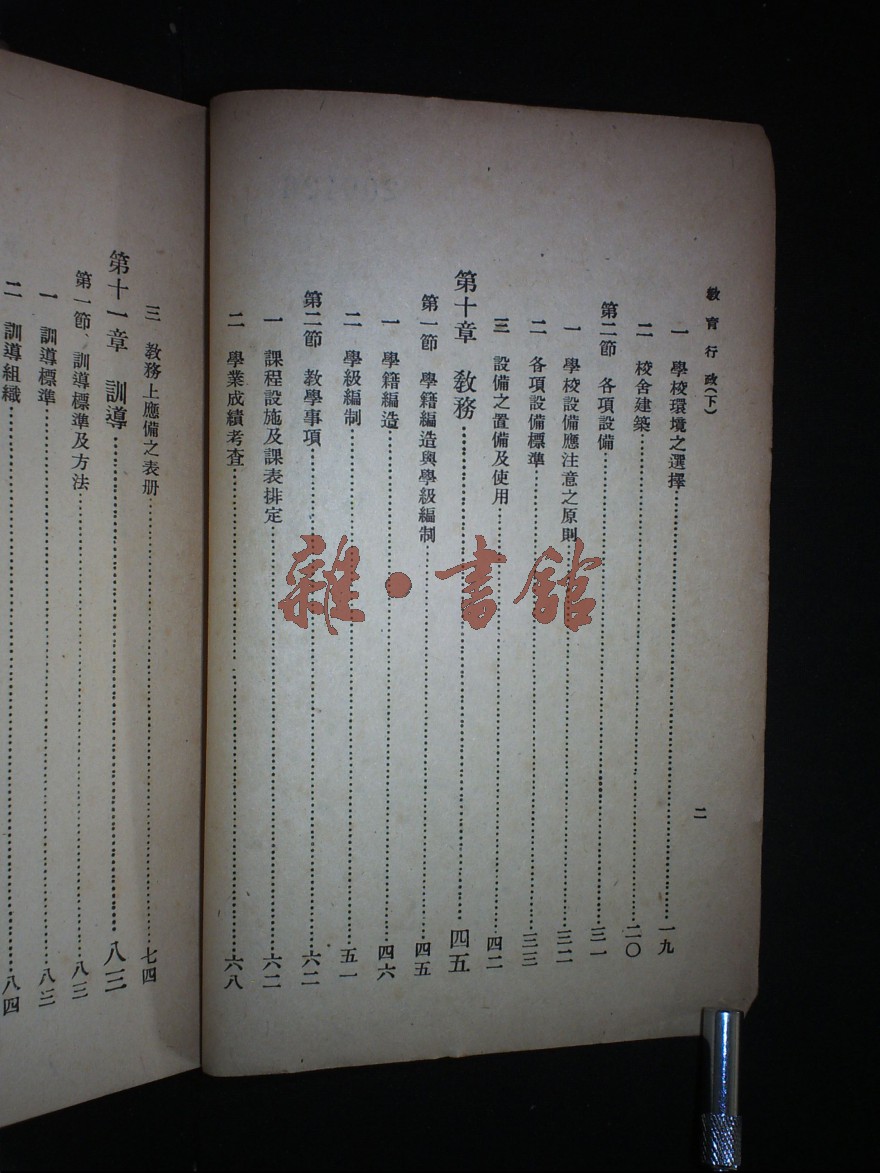 教育行政(下)
二
一 學校環境之選擇……一九
二 校舍建築……二〇
第二節 各項設備……三一
一 學校設備應注意之原則……三二
二 各項設備標準……三三
三 設備之置備及使用……四二
第十章 教務……四五
第一節 學籍編造與學級編制……四五
一 學籍編造……四六
二 學級編制……五一
第二節 教學事項……六二
一 課程設施及課表排定……六二
二 學業成績考查……六八
三 教務上應備之表册……七四
第十一章 訓導……八三
第一節 訓導標準及方法……八三
一 訓導標準……八三
二 訓導組織……八四
雜·書館